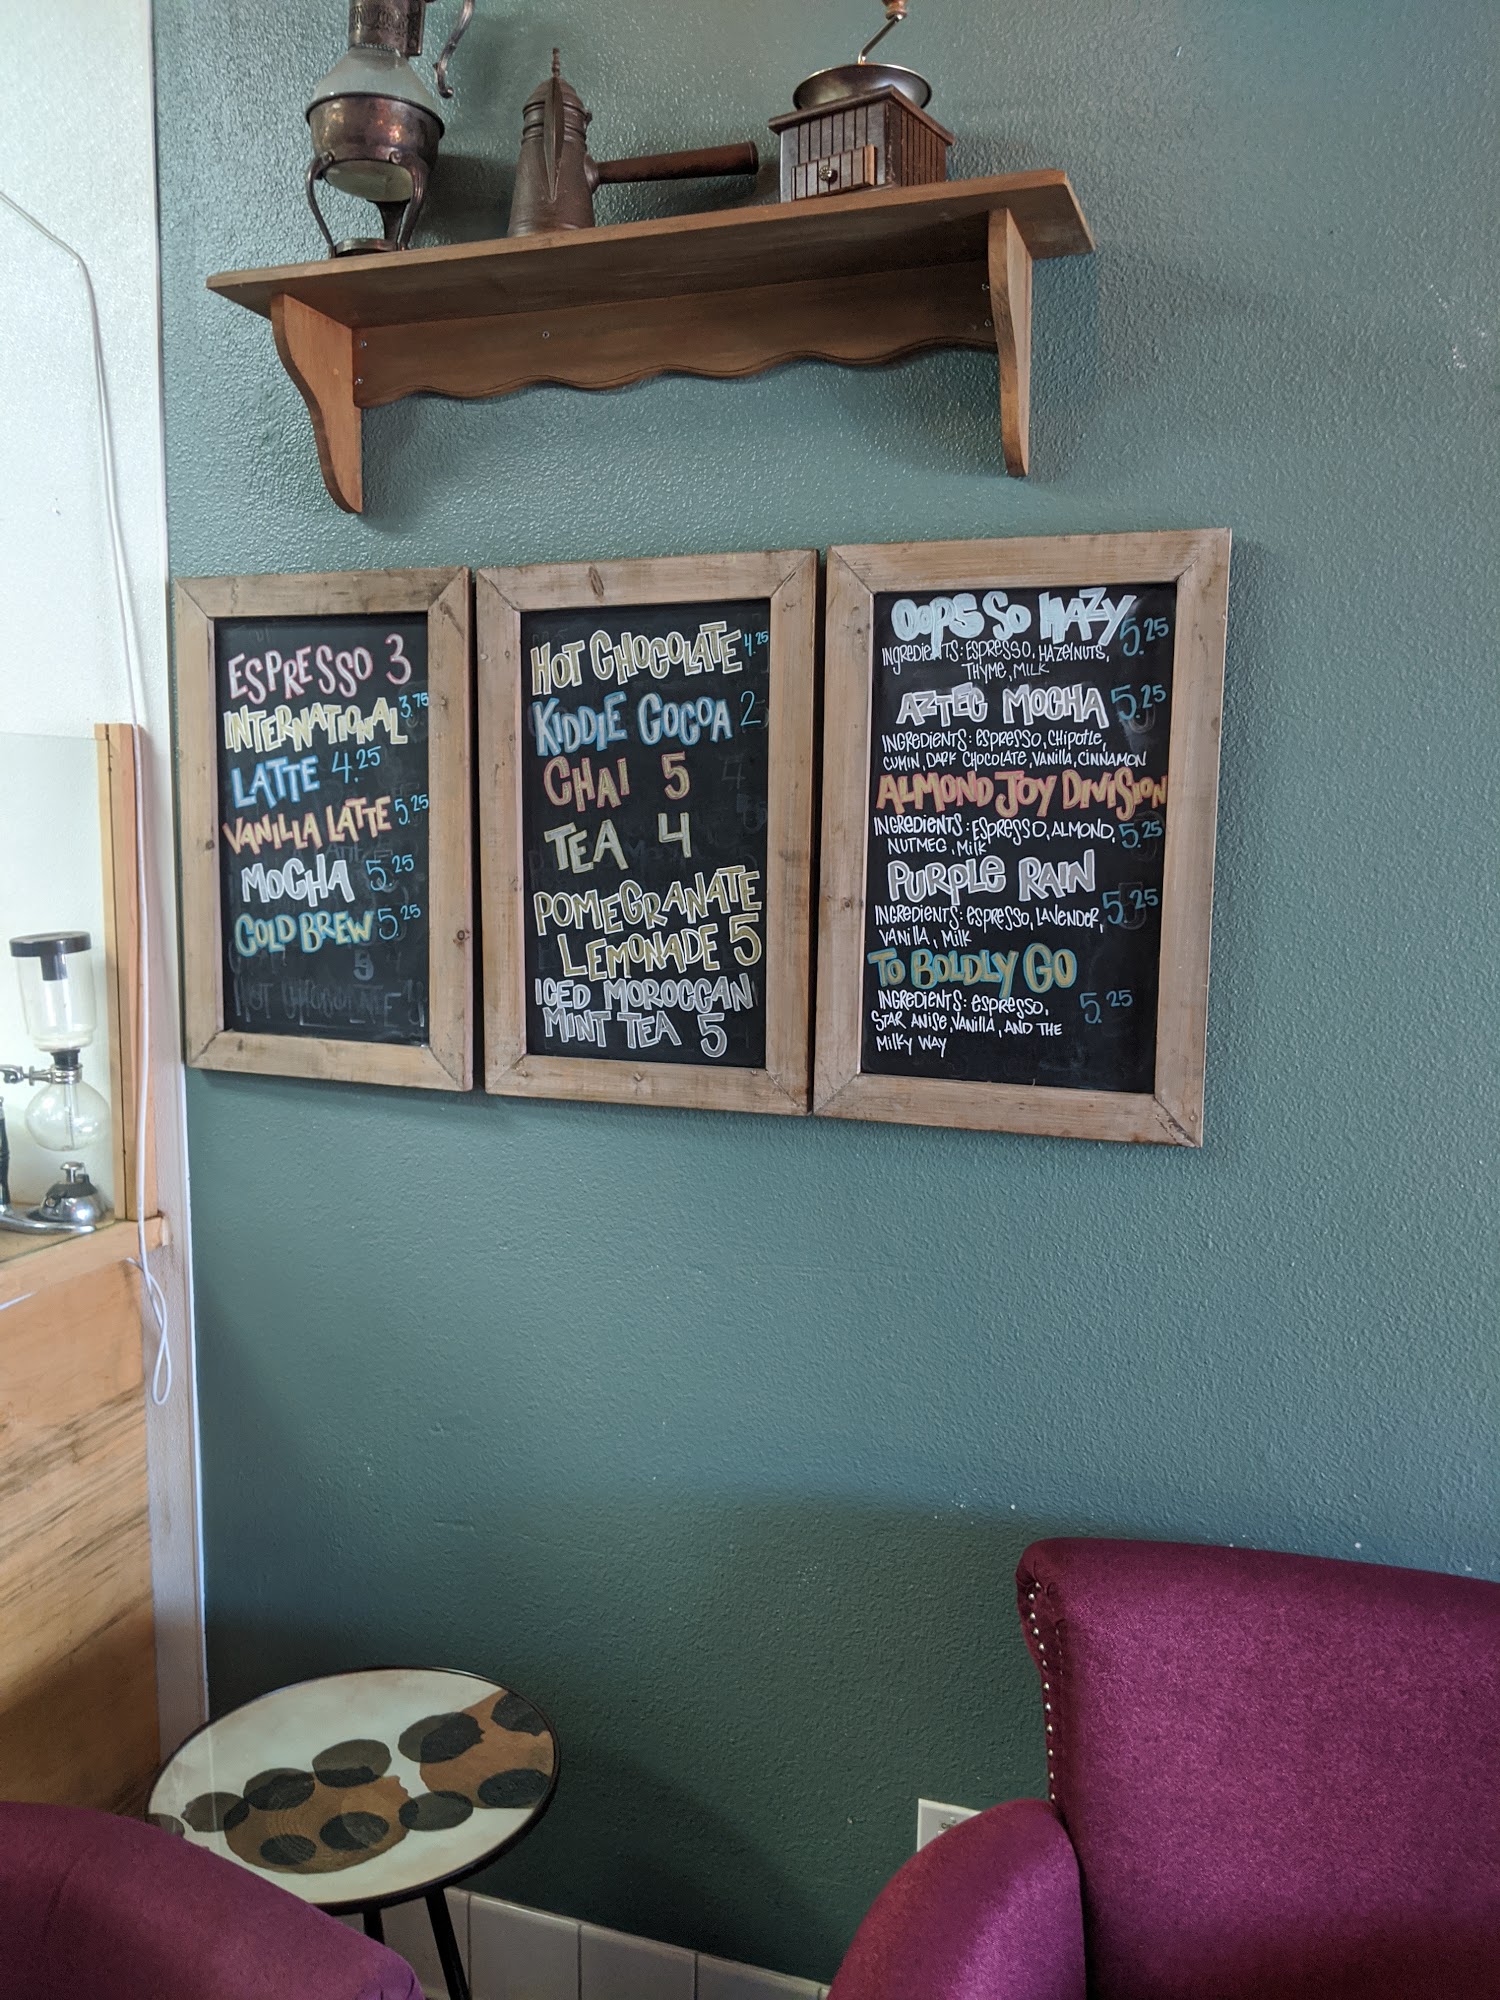 ESPRESSO 3
INTERNATIONAL 3.75
LATTE 4.25
VANILLA LATTE 5.25
MOCHA 5.25
COLD BREW 5.25
HOT CHOCOLATE
HOT CHOCOLATE 4.25
KIDDIE COCOA 2
CHAI 5
TEA 4
POMEGRANATE
LEMONADE 5
ICED MOROCCAN
MINT TEA 5
OOPS SO HAZY 5.25
INGREDIENTS: ESPRESSO, HAZELNUTS,
THYME, MILK
AZTEC MOCHA 5.25
INGREDIENTS: ESPRESSO, CHIPOTLE,
CUMIN, DARK CHOCOLATE, VANILLA, CINNAMON
ALMOND JOY DIVISION
INGREDIENTS: ESPRESSO, ALMOND, 5.25
NUTMEG, MILK
PURPLE RAIN 5.25
INGREDIENTS: ESPRESSO, LAVENDER,
VANILLA, MILK
TO BOLDLY GO
INGREDIENTS: ESPRESSO, 5.25
STAR ANISE, VANILLA, AND THE
MILKY WAY